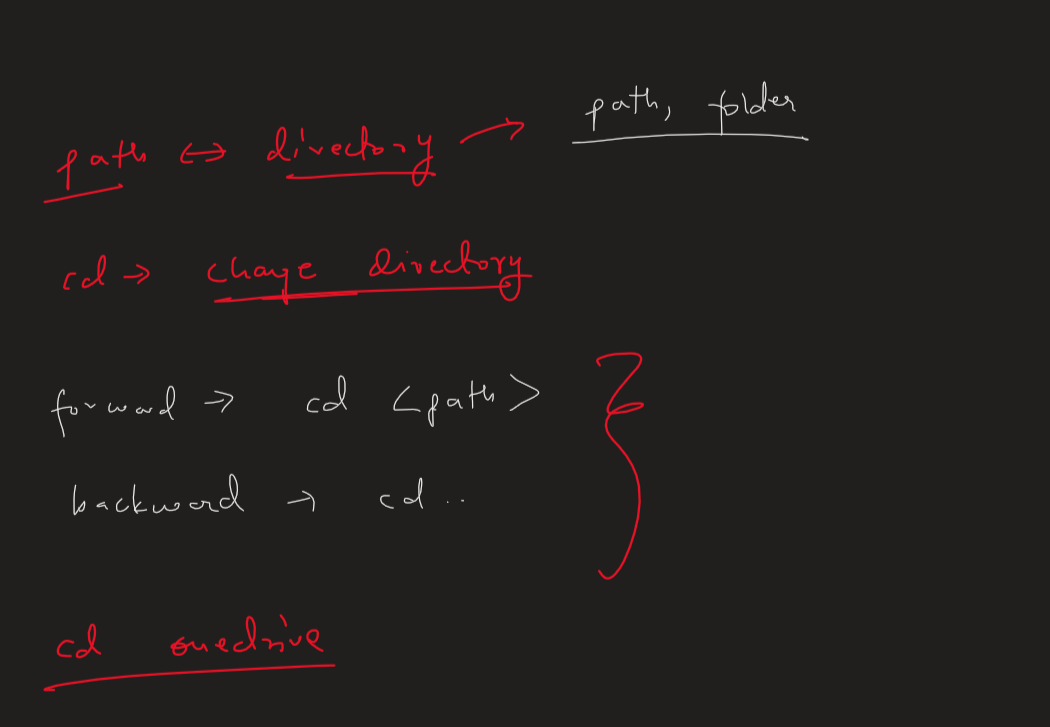 path ↔ directory → path, folder
cd → change directory
forward → cd <path>
backward → cd ..
cd onedrive